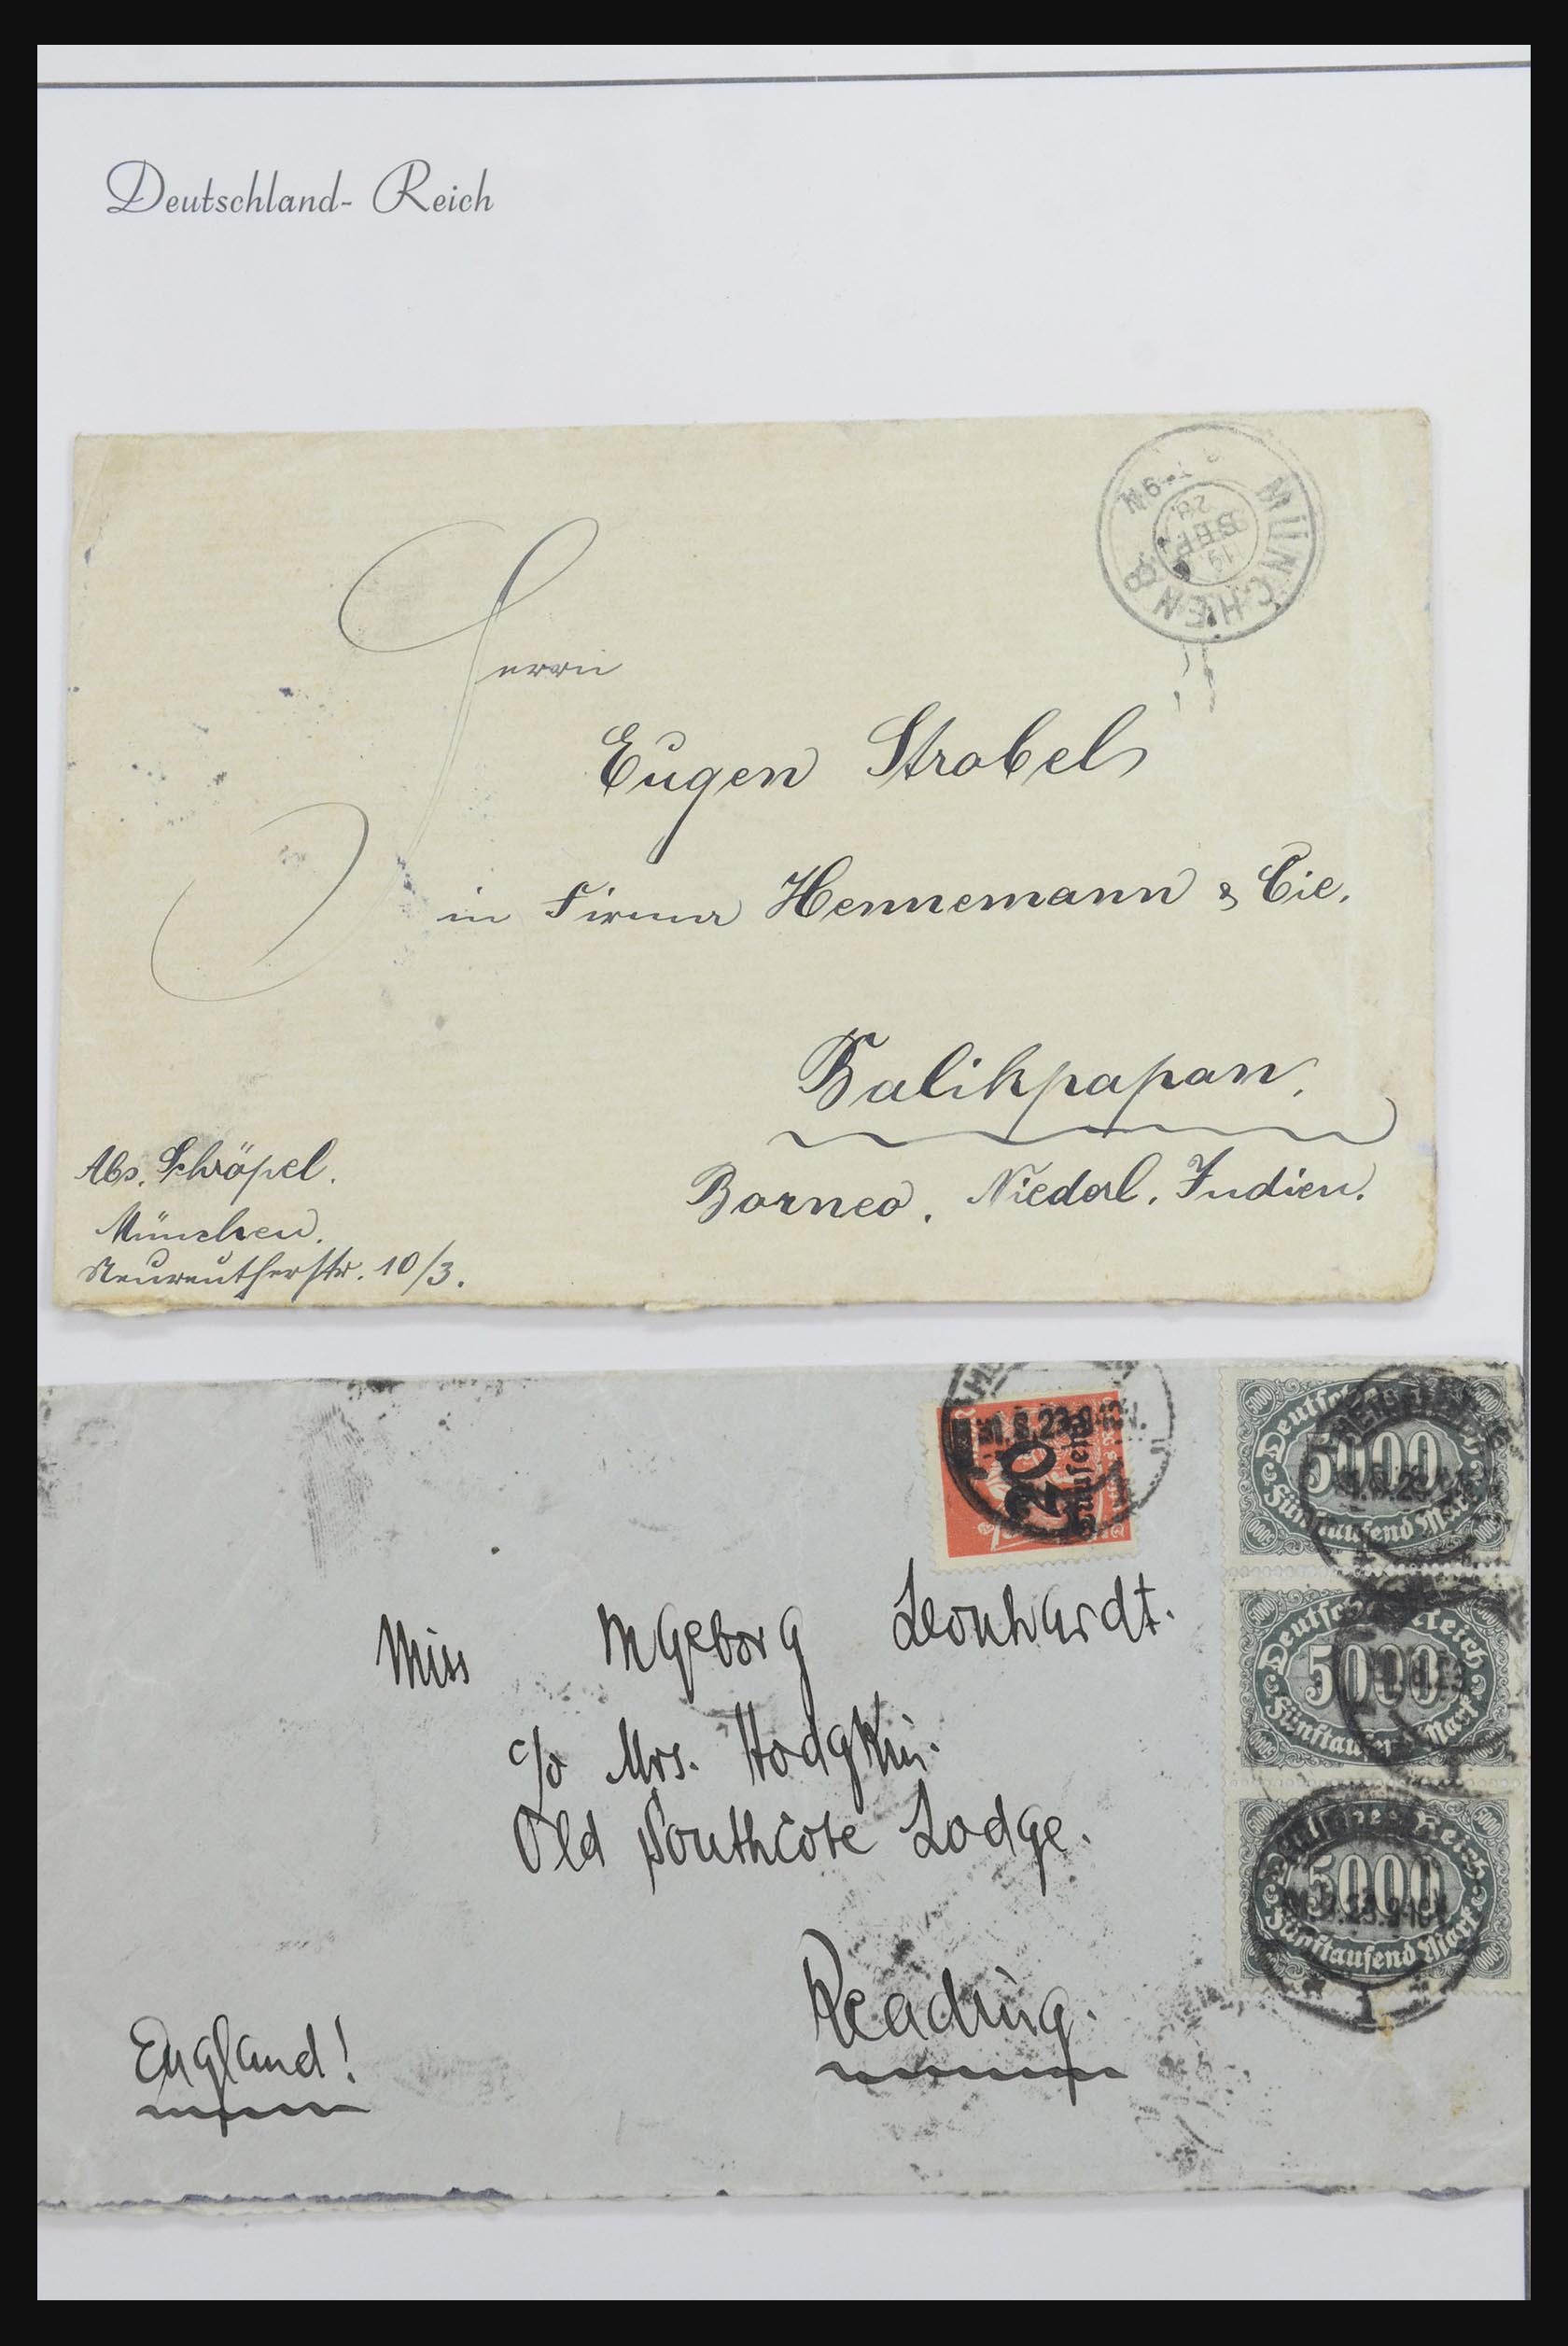 Deutschland- Reich
MÜNCHEN 8.
7-9N
SEP.
19
Herrn
Eugen Strobel
in Firma Hennemann & Cie.
Balikpapan.
Borneo. Niederl. Indien.
Abs. Schröpel.
München.
Neureutherstr. 10/3.
20
Tausend
Deutsches Reich
5000
Fünftausend Mark
Deutsches Reich
5000
Fünftausend Mark
Deutsches Reich
5000
Fünftausend Mark
Miss Ingeborg Leonhardt.
c/o Mrs. Hodgkin.
Old Southcote Lodge.
Reading.
England!